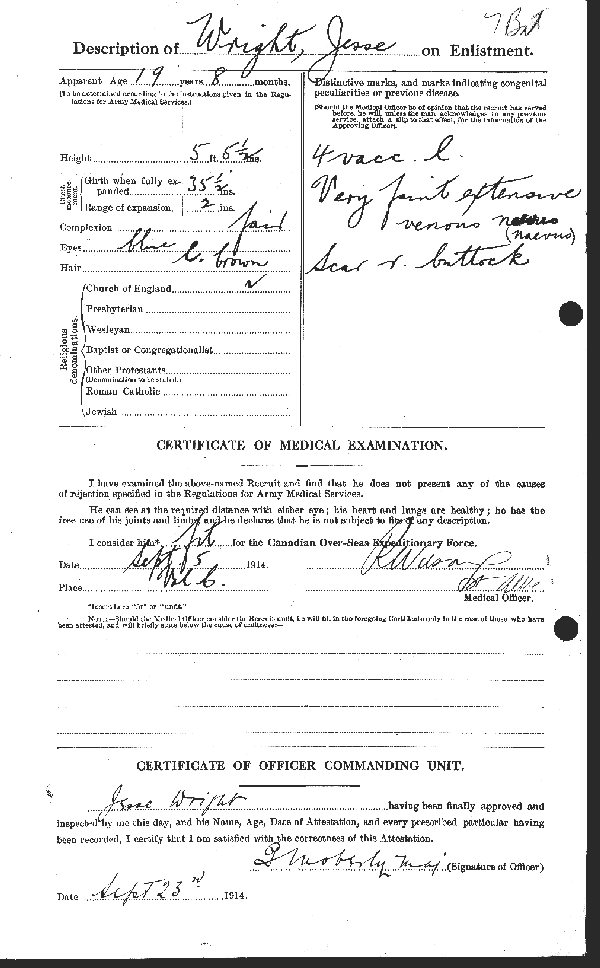 7 Bat
Description of Wright, Jesse on Enlistment.
Apparent Age 19 years 8 months.
(To be determined according to the instructions given in the Regulations for Army Medical Services.)
Height 5 ft. 6 1/2 ins.
Chest Measurement.
Girth when fully expanded 35 1/2 ins.
Range of expansion 2 ins.
Complexion fair
Eyes blue
Hair l. brown
Religious denominations.
Church of England ✓
Presbyterian
Wesleyan
Baptist or Congregationalist
Other Protestants
(Denomination to be stated.)
Roman Catholic
Jewish
Distinctive marks, and marks indicating congenital
peculiarities or previous disease.
(Should the Medical Officer be of opinion that the recruit has served
before, he will, unless the man acknowledges to any previous
service, attach a slip to that effect, for the information of the
Approving Officer).
4 vacc. l.
Very faint extensive
venous
(naevus)
Scar r. buttock
CERTIFICATE OF MEDICAL EXAMINATION.
I have examined the above-named Recruit and find that he does not present any of the causes
of rejection specified in the Regulations for Army Medical Services.
He can see at the required distance with either eye; his heart and lungs are healthy; he has the
free use of his joints and limbs, and he declares that he is not subject to fits of any description.
I consider him* fit for the Canadian Over-Seas Expeditionary Force.
Date Sept 5 1914.
Place
Medical Officer.
*Insert here "fit" or "unfit."
NOTE.—Should the Medical Officer consider the Recruit unfit, he will fill in the foregoing Certificate only in the case of those who have
been attested, and will briefly state below the cause of unfitness:—
CERTIFICATE OF OFFICER COMMANDING UNIT.
Jesse Wright having been finally approved and
inspected by me this day, and his Name, Age, Date of Attestation, and every prescribed particular having
been recorded, I certify that I am satisfied with the correctness of this Attestation.
Moberly Maj (Signature of Officer)
Date Sept 23rd 1914.